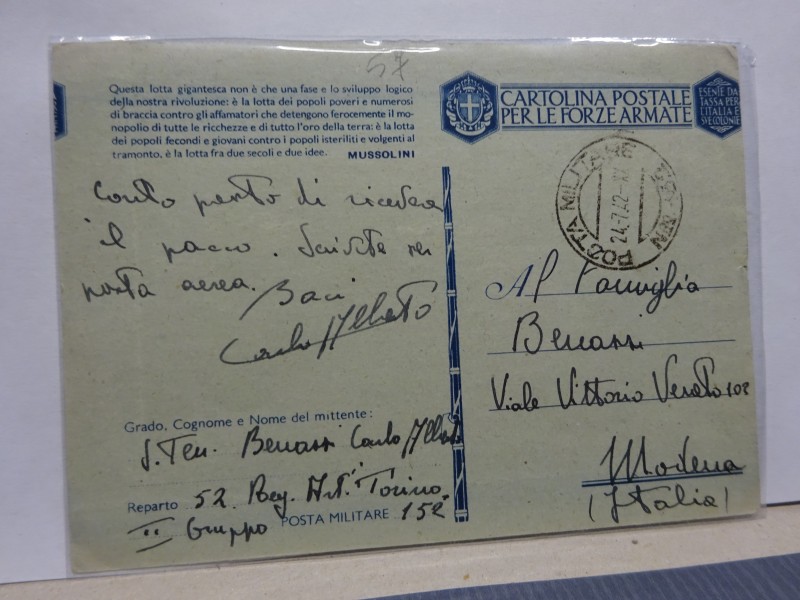 57
Questa lotta gigantesca non è che una fase e lo sviluppo logico
della nostra rivoluzione: è la lotta dei popoli poveri e numerosi
di braccia contro gli affamatori che detengono ferocemente il mo-
nopolio di tutte le ricchezze e di tutto l'oro della terra: è la lotta
dei popoli fecondi e giovani contro i popoli isteriliti e volgenti al
tramonto, è la lotta fra due secoli e due idee. MUSSOLINI
Conto presto di ricevere
il pacco. Scrivete per
posta aerea.
Baci
Carlo Alberto
Grado, Cognome e Nome del mittente:
S. Ten. Benassi Carlo Alberto
Reparto 52 Reg. Art. Torino
II Gruppo POSTA MILITARE 152
CARTOLINA POSTALE
PER LE FORZE ARMATE
ESENTE DA
TASSA PER
L'ITALIA E
SVE COLONIE
POSTA MILITARE
24.7.42
Al Famiglia
Benassi
Viale Vittorio Veneto 102
Modena
(Italia)